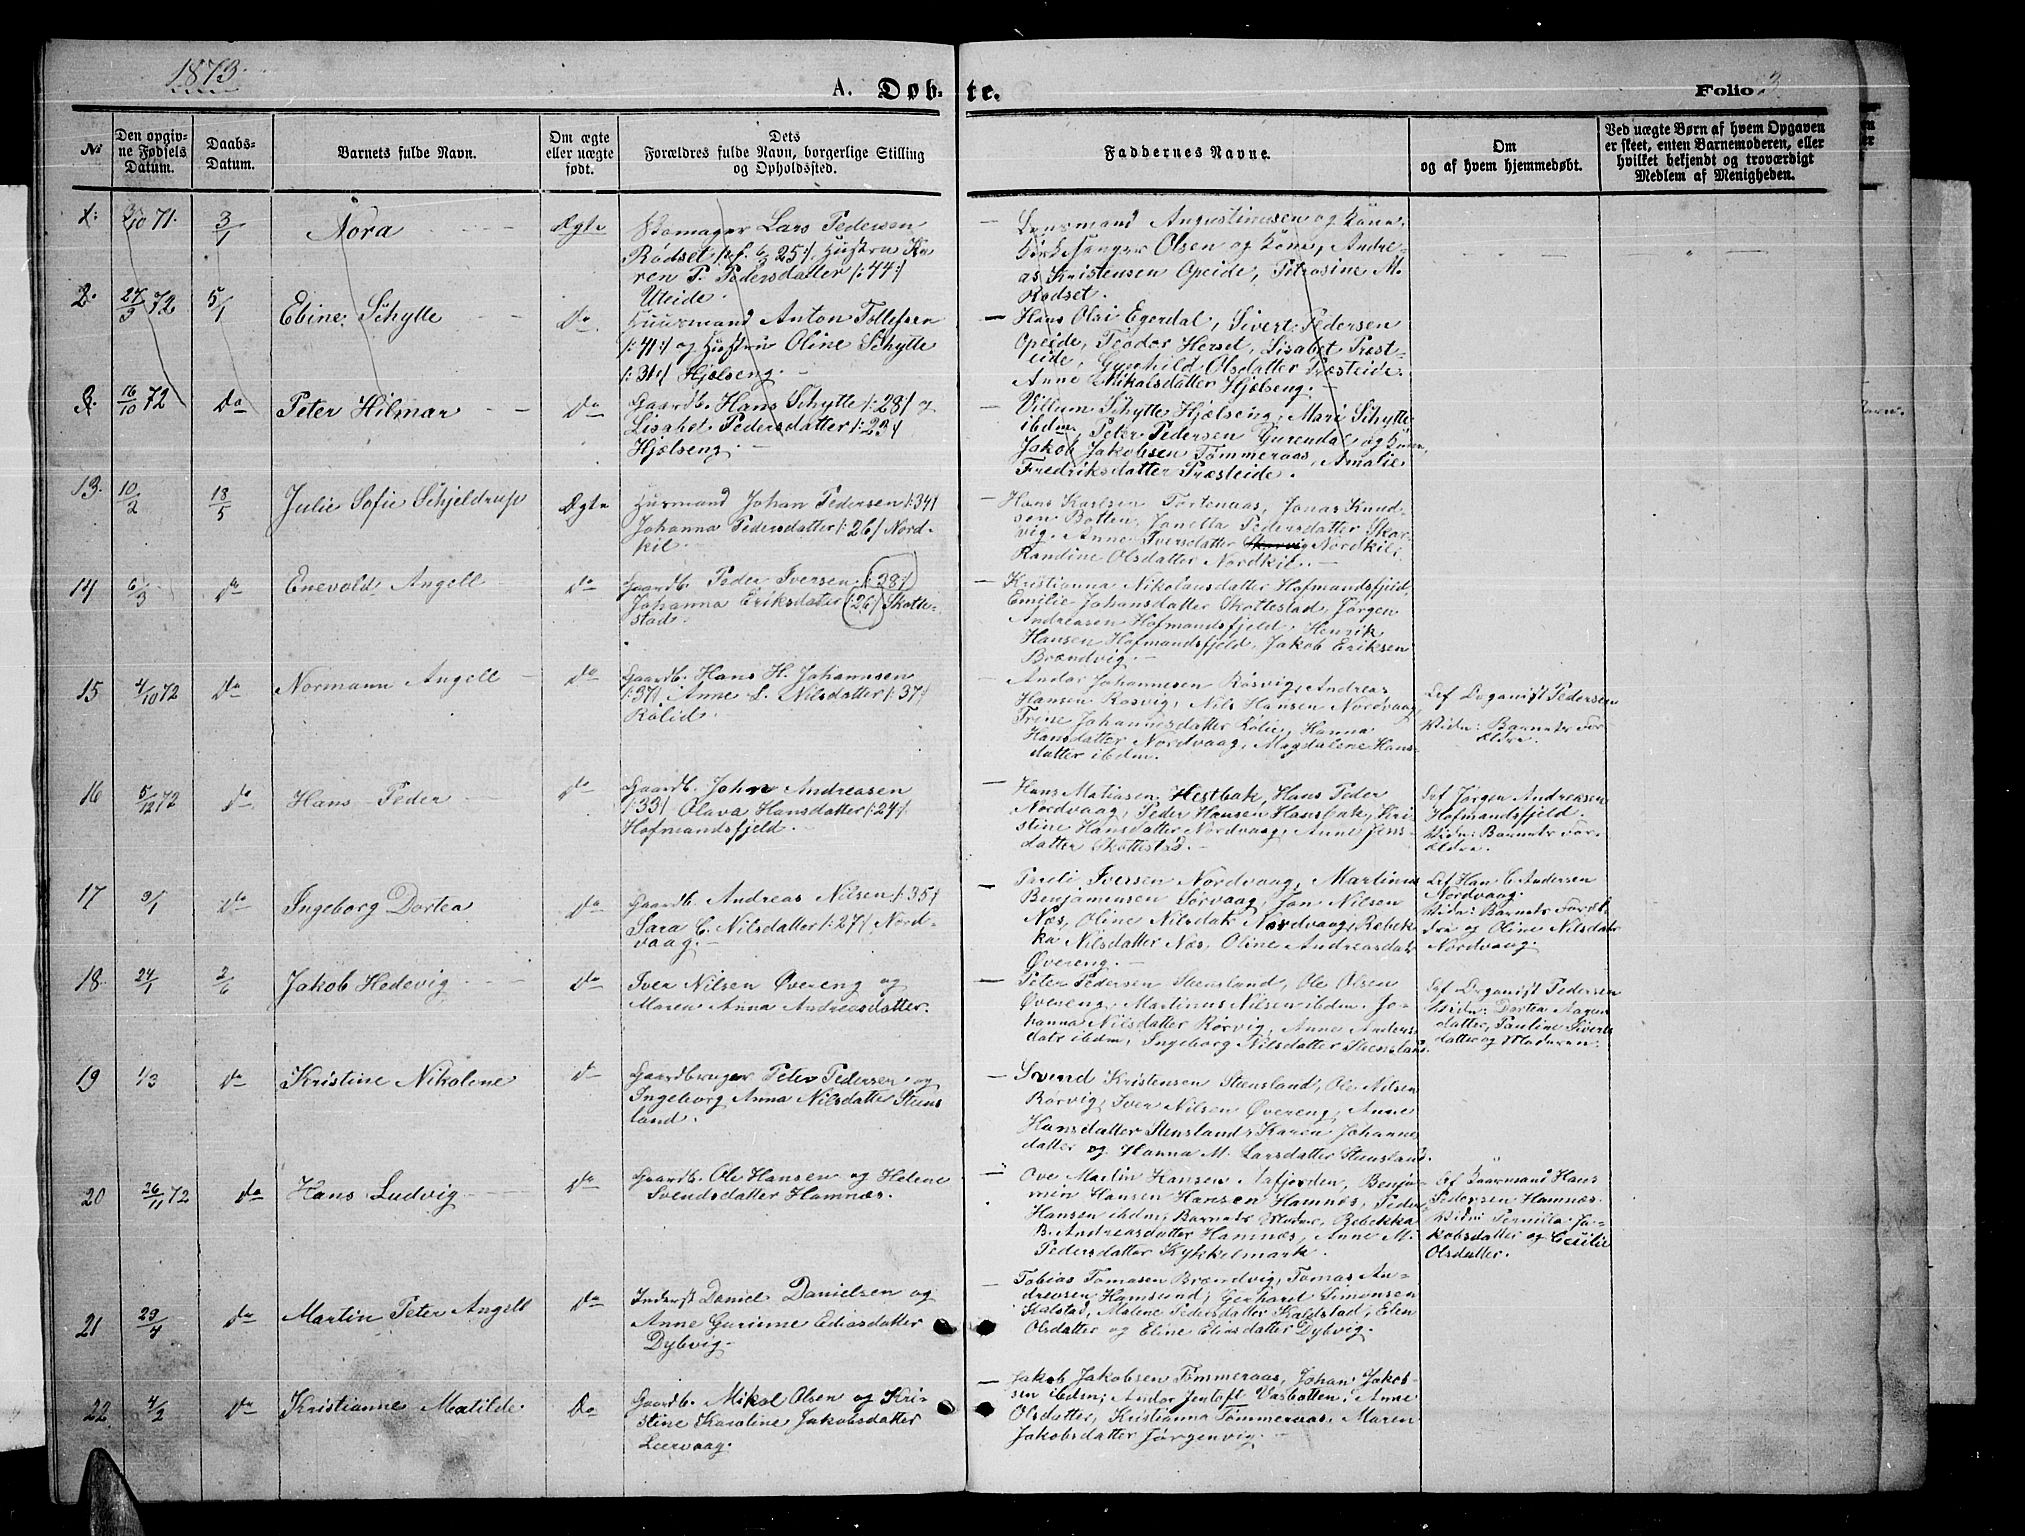 1873.
A. Døb-te.
Folio 3.
No
Den opgiv-
ne Fødsels
Datum.
Daabs-
Datum.
Barnets fulde Navn.
Om ægte
eller uægte
født.
Dets
Forældres fulde Navn, borgerlige Stilling
og Opholdssted.
Faddernes Navne.
Om
og af hvem hjemmedøbt.
Ved uægte Børn af hvem Opgaven
er skeet, enten Barnemoderen, eller
hvilket bekjendt og troværdigt
Medlem af Menigheden.
1. 71. 3/1 Nora Ægte
Skomager Lars Pedersen
Rødset /: f. 25 :/ Hustru Ka-
ren P. Pedersdatter /: 44 :/
Uteide.
Lensmand Augustinusen og Kone,
Kirkesanger Olsen og Kone, Andre-
as Kristensen Opeide, Petrosine M.
Rødset.
2. 27/3 72 5/1 Ebine Schytte Do
Huusmand Anton Tollefsen
/: 41 :/ og Hustru Oline Schytte
/: 31 :/ Hjelseng. —
— Hans Olai Egerdal, Sivert Pedersen
Opeide, Teodor Herset, Lisabet Præst-
eide, Gunhild Olsdatter Præsteide
Anne Nikolsdatter Hjelseng. —
3. 16/10 72 Do Peter Hilmar Do
Gaardb. Hans Schytte /: 28 :/ og
Lisabet Pedersdatter /: 23 :/
Hjelseng. —
— Villum Schytte Hjelseng, Mari Schytte
ibdm, Peter Pedersen Gurendal og Kone,
Jakob Jakobsen Tømmeraas, Amalie
Fredriksdatter Præsteide.
13. 10/2 18/5 Julie Sofie Schjeldrup Ægte
Husmand Johan Pedersen /: 34 :/
Johanna Pedersdatter /: 26 :/ Nord-
kil.
— Hans Karlsen Tortenaas, Jonas Knud-
sen Botten, Janetta Pedersdatter Skar-
vig, Anne Iversdatter Skarvig Nordkil,
Randine Olsdatter Nordkil. —
14 6/3 Do Enevold Angell Do
Gaardb. Peder Iversen /: 28 :/
Johanna Eriksdatter /: 26 :/ Skotte-
stad.
— Kristianna Nikolausdatter Hofmandsfjeld,
Emilie Johansdatter Skottestad, Jørgen
Andreasen Hofmandsfjeld, Henrik
Hansen Hofmandsfjeld, Jakob Eriksen
Brændvig. —
15 4/10 72 Do Normann Angell Do
Gaardb. Hans H. Johannsen
/: 37 :/, Anne L. Nilsdatter /: 37 :/
Rølid.
— Andor Johannesen Røsvig, Andreas
Hansen Røsvig, Nils Hansen Nordvaag,
Trine Johannesdatter Rølie, Hanna
Hansdatter Nordvaag, Magdalene Hans-
datter ibdm.
Af Organist Pedersen
Vidn: Barnets For-
ældre.
16 5/12 72 Do Hans Peder Do
Gaardb. John Andreasen
/: 33 :/ Olava Hansdatter /: 24 :/
Hofmandsfjeld. —
— Hans Matiasen Hestbak, Hans Peder
Nordvaag, Peder Hansen Hansbak, Kri-
stine Hansdatter Nordvaag, Anne Jens-
datter Skottestad. —
Af Jørgen Andreasen
Hofmandsfjeld.
Vidn: Barnets For-
ældre.
17 3/1 Do Ingeborg Dortea Do
Gaardb. Andreas Nilsen /: 35 :/
Sara C. Nilsdatter /: 27 :/ Nord-
vaag. —
— Iversen Nordvaag, Martinus
Benjaminsen Sørvaag, Jon Nilsen
Næs, Oline Nilsdatr Nordvaag, Rebek-
ka Nilsdatter Næs, Oline Andreasdatr
Øvereng. —
Af Han C. Andersen
Nordvaag.
Vidn: Barnets Foræl-
dre og Oline Nilsdatr
Nordvaag.
18. 24/1 2/6 Jakob Hedevig Do
Iver Nilsen Øvereng og
Maren Anna Andreasdatter.
— Peter Pedersen Steensland, Ole Olsen
Øvereng, Martinus Nilsen ibdm. Jo-
hanna Nilsdatter Rørvig, Anne Anders-
datr ibdm, Ingeborg Nilsdatter Steensland.
Af Organist Pedersen
Vidn: Dortea Aagen-
datter, Pauline Sivers-
datter og Moderen.
19 1/3 Do Kristine Nikolene Do
Gaardbruger Peter Pedersen og
Ingeborg Anna Nilsdatter Steens-
land.
— Svend Kristensen Steensland, Ole Nilsen
Rørvig, Iver Nilsen Øvereng, Anne
Hansdatter Stensland, Karen Johannes-
datter og Hanna M. Larsdatter Stensland.
20 26/11 72 Do Hans Ludvig Do
Gaardb. Ole Hansen og Helene
Svendsdatter Hamnæs.
— Ove Martin Hansen, Benja-
min Hansen Hansen Hamnæs, Peder
Hansen ibdm, Barnets Moder, Rebekka
B. Andreasdatter Hamnæs, Anne M.
Pedersdatter Kykkelmark.
Af Kaarmand Hans
Pedersen Hamnæs.
Vidn: Pernilla Ja-
kobsdatter og Cecilie
Olsdatter.
21 29/4 Do Martin Peter Angell Do
Inderst Daniel Danielsen og
Anne Gurinne Eliasdatter
Dybvig.
— Tobias Tomasen Brændvig, Tomas An-
dreasen Hamsund, Gerhard Simonsen
Kalstad, Malene Pedersdatter Kaldstad, Elen
Olsdatter og Eline Eliasdatter Dybvig.
22 4/2 Do Kristianne Matilde Do
Gaardb. Mikal Olsen og Kri-
stine Karoline Jakobsdatter
Leervaag.
— Jakob Jakobsen Tømmeraas, Johan Jakob-
sen ibdm, Andor Jentoft Vasbotten, Anne
Olsdatter, Kristianna Tømmeraas, Maren
Jakobsdatter Jørgenvig. —